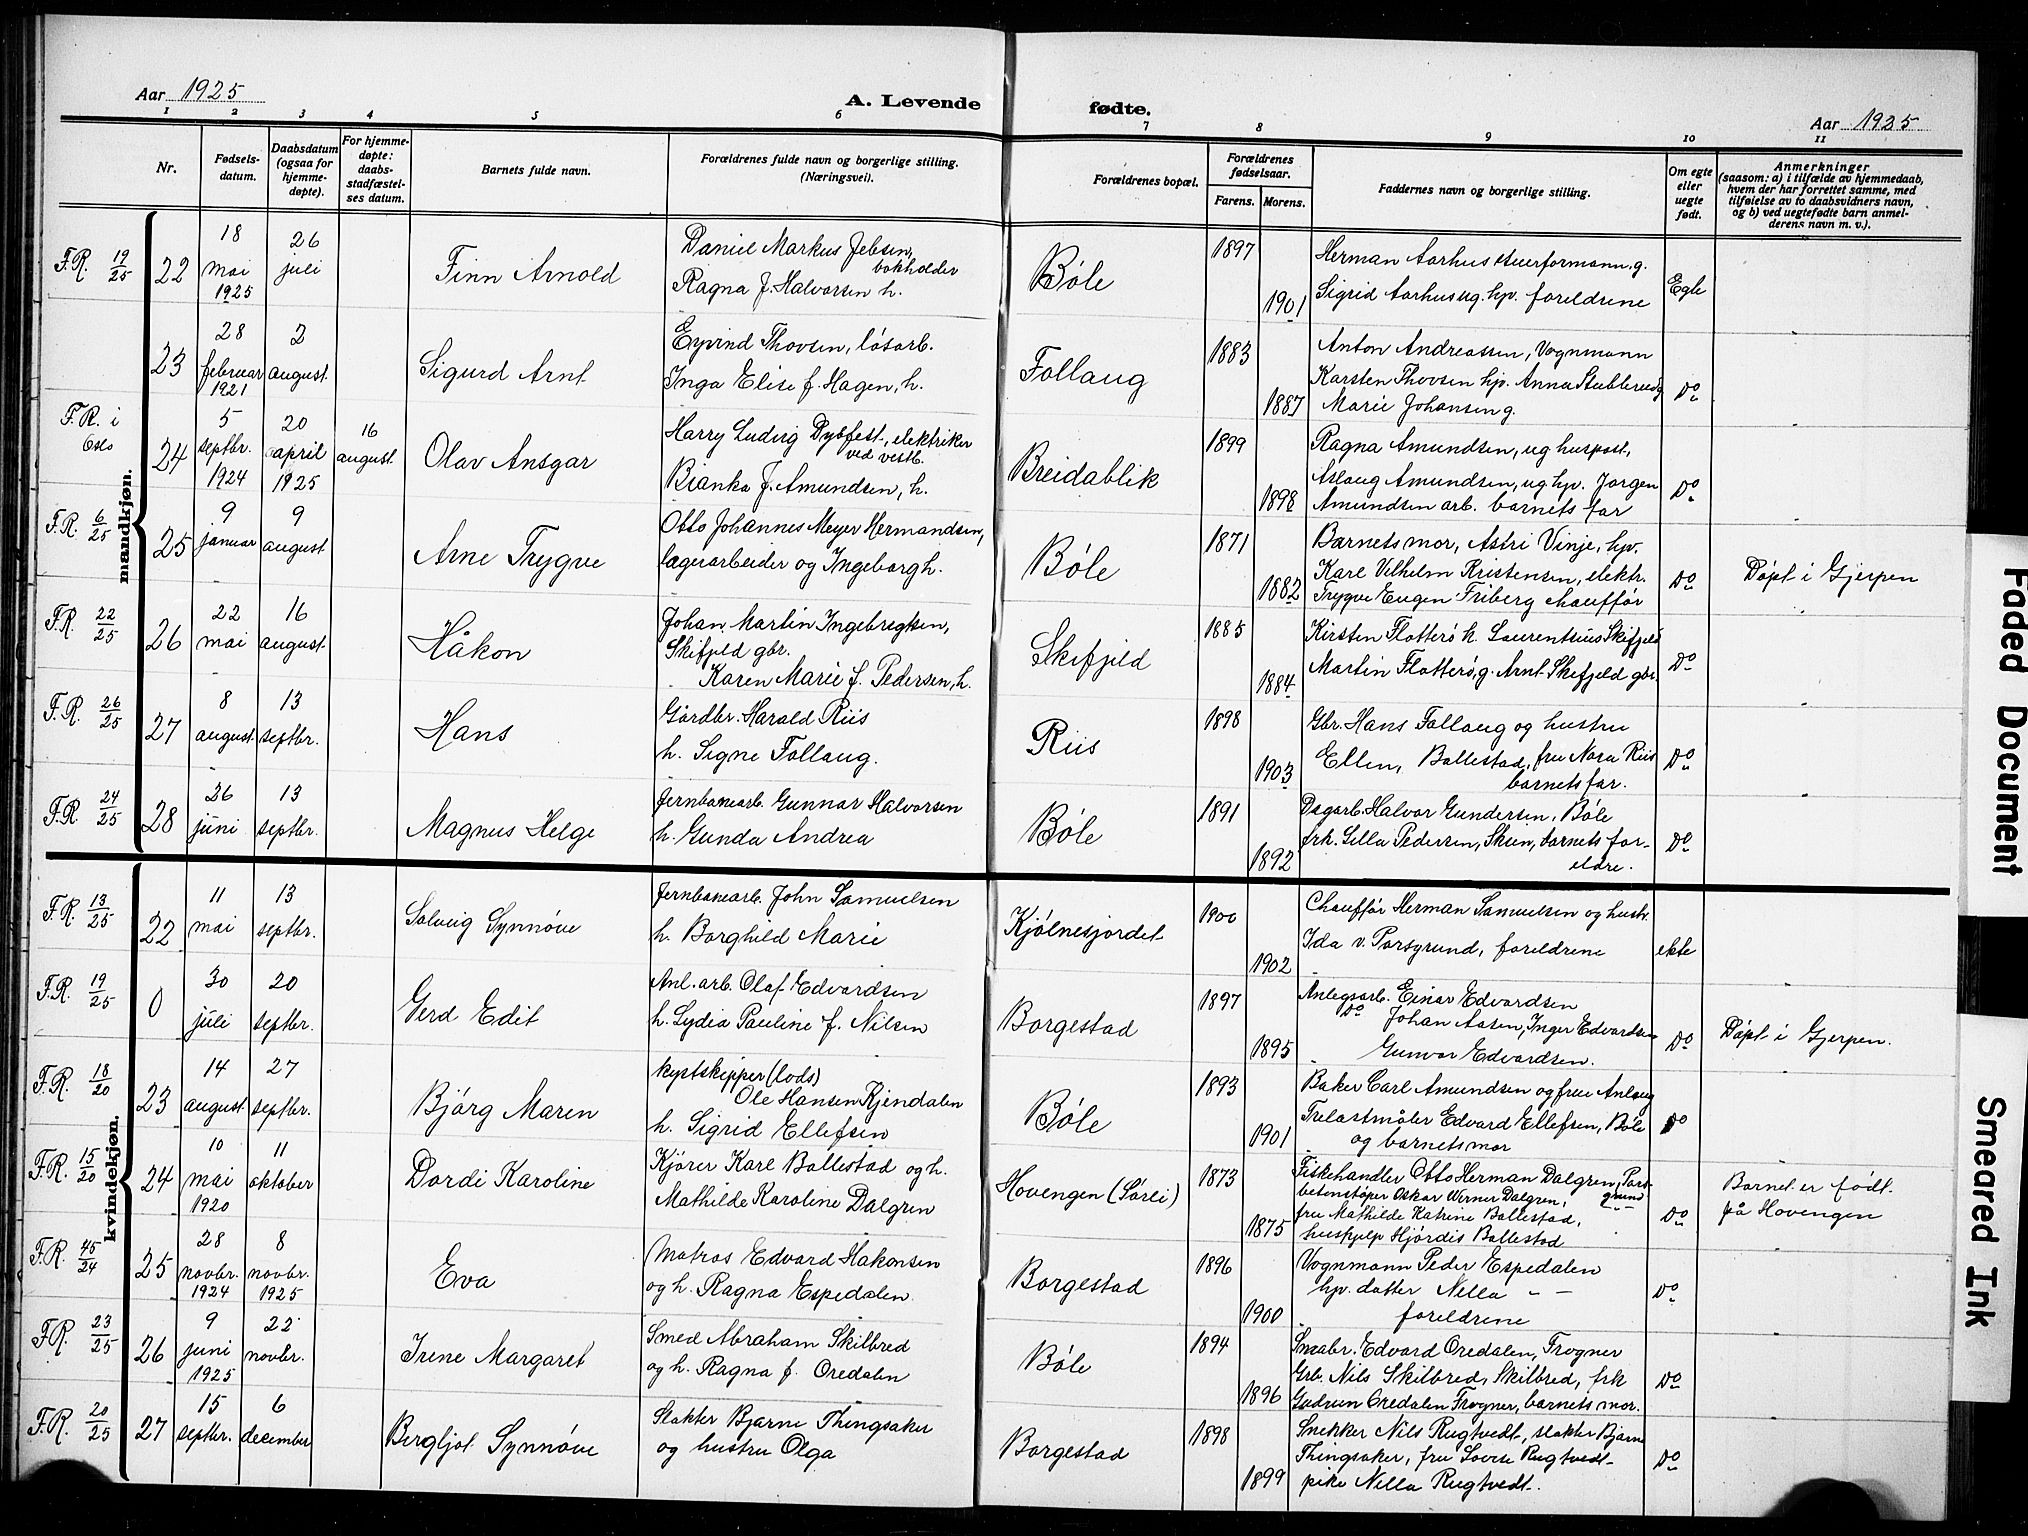 Aar 1925
A. Levende
fødte.
Aar 1925
1 2 3 4 5 6 7 8 9 10 11
Nr.
Fødsels-
datum.
Daabsdatum
(ogsaa for
hjemme-
døpte).
For hjemme-
døpte:
daabs-
stadfæstel-
ses datum.
Barnets fulde navn.
Forældrenes fulde navn og borgerlige stilling.
(Næringsvei).
Forældrenes bopæl.
Forældrenes
fødselsaar.
Farens. Morens.
Faddernes navn og borgerlige stilling.
Om egte
eller
uegte
født.
Anmerkninger
(saasom: a) i tilfælde av hjemmedaab,
hvem der har forrettet samme, med
tilføielse av to daabsvidners navn,
og b) ved uegtefødte barn anmel-
derens navn m. v.).
mandkjøn.
F.R. 19/25
22
18
mai
1925
26
juli
Finn Arnold
Daniel Markus Jebsen,
bokholder
Ragna f. Halvorsen h.
Bøle
1897
1901
Herman Aarhus stuerformann, g.
Sigrid Aarhus ug. hp. foreldrene
Egte
23
28
februar
1921
2
august
Sigurd Arnt
Eyvind Thovsen, løsarb.
Inga Elise f. Hagen, h.
Follaug
1883
1887
Anton Andreassen, Vognmann
Karsten Thovsen hp. Anna Stubberud g
Marie Johansen g.
Do
F.R. i
Oslo
24
5
septbr.
1924
20
april
1925
16
august
Olav Ansgar
Harry Ludvig Dybfest, elektriker
ved vestb.
Bianka f. Amundsen, h.
Breidablik
1899
1898
Ragna Amundsen, ug huspost,
Aslaug Amundsen, ug hp. Jørgen
Amundsen arb. barnets far
Do
F.R. 6/25
25
9
januar
9
august
Arne Trygve
Otto Johannes Meyer Hermandsen,
lagerarbeider og Ingeborg h.
Bøle
1871
1882
Barnets mor, Astri Vinje, hp.
Karl Vilhelm Kristensen, elektr.
Trygve Eugen Friberg chauffør
Do
Døpt i Gjerpen
F.R. 22/25
26
22
mai
16
august
Håkon
Johan Martin Ingebregtsen,
Skifjeld gbr.
Karen Marie f. Pedersen, h.
Skifjeld
1885
1884
Kirsten Flotterø h. Laurentius Skifjeld
Martin Flotterø, g. Arnt Skifjeld gbr.
Do
F.R. 26/25
27
8
august
13
septbr.
Hans
Gårdbr. Harald Riis
h. Signe Follaug.
Riis
1898
1903
Gbr. Hans Follaug og hustru
Ellen, Ballestad, fru Nora Riis
barnets far.
Do
F.R. 24/25
28
26
juni
13
septbr.
Magnus Helge
Jernbanearb. Gunnar Halvorsen
h. Gunda Andrea
Bøle
1891
1892
Dagarb. Halvor Gundersen, Bøle
frk. Gilla Pedersen, Skien, barnets for-
eldre.
Do
kvindekjøn.
F.R. 13/25
22
11
mai
13
septbr.
Solveig Synnøve
Jernbanearb. John Samuelsen
h. Borghild Marie
Kjølnesjordet
1900
1902
Chauffør Herman Samuelsen og hustr.
Ida v. Porsgrund, foreldrene
ekte
F.R. 19/25
0
30
juli
20
septbr.
Gerd Edit
Anl. arb. Olaf Edvardsen
h. Lydia Pauline f. Nilsen
Borgestad
1897
1895
Anlegsarb. Einar Edvardsen
Do Johan Aasen, Inger Edvardsen
Gunvor Edvardsen.
Do
Døpt i Gjerpen.
F.R. 18/20
23
14
august
27
septbr.
Bjørg Maren
kystskipper (lods)
Ole Hansen Kjendalen
h. Sigrid Ellefsen
Bøle
1893
1901
Baker Carl Amundsen og frue Anlaug
Trelastmåler Edvard Ellefsen, Bøle
og barnets mor
Do
F.R. 15/20
24
10
mai
1920
11
oktober
Dordi Karoline
Kjører Karl Ballestad og h.
Mathilde Karoline Dalgren
Hovengen (Sørli)
1873
1875
Fiskehandler Otto Herman Dalgren, Pors-
grund
betonstøper Oskar Werner Dalgren, -"-
fru Mathilde Katrine Ballestad,
hushjelp Hjørdis Ballestad
Do
Barnet er født
på Hovengen
F.R. 45/24
25
28
novbr.
1924
8
novbr.
1925
Eva
Matros Edvard Håkonsen
og h. Ragna Espedalen
Borgestad
1896
1900
Vognmann Peder Espedalen
hp. datter Nella - -
foreldrene
Do
F.R. 23/25
26
9
juni
1925
22
novbr.
Irene Margaret
Smed Abraham Skilbred
og h. Ragna f. Oredalen
Bøle
1894
1896
Småbr. Edvard Oredalen, Frogner
Grb. Nils Skilbred, Skilbred, frk
Gudrun Oredalen Frogner, barnets mor.
Do
F.R. 20/25
27
15
septbr.
6
december
Bergljot Synnøve
Slakter Bjarne Thingsaker
og hustru Olga
Borgestad
1898
1899
Snekker Nils Rugtvedt, slakter Bjarne
Thingsaker, fru Lovise Rugtvedt
pike Nella Rugtvedt.
Do
Faded Document
Smeared Ink